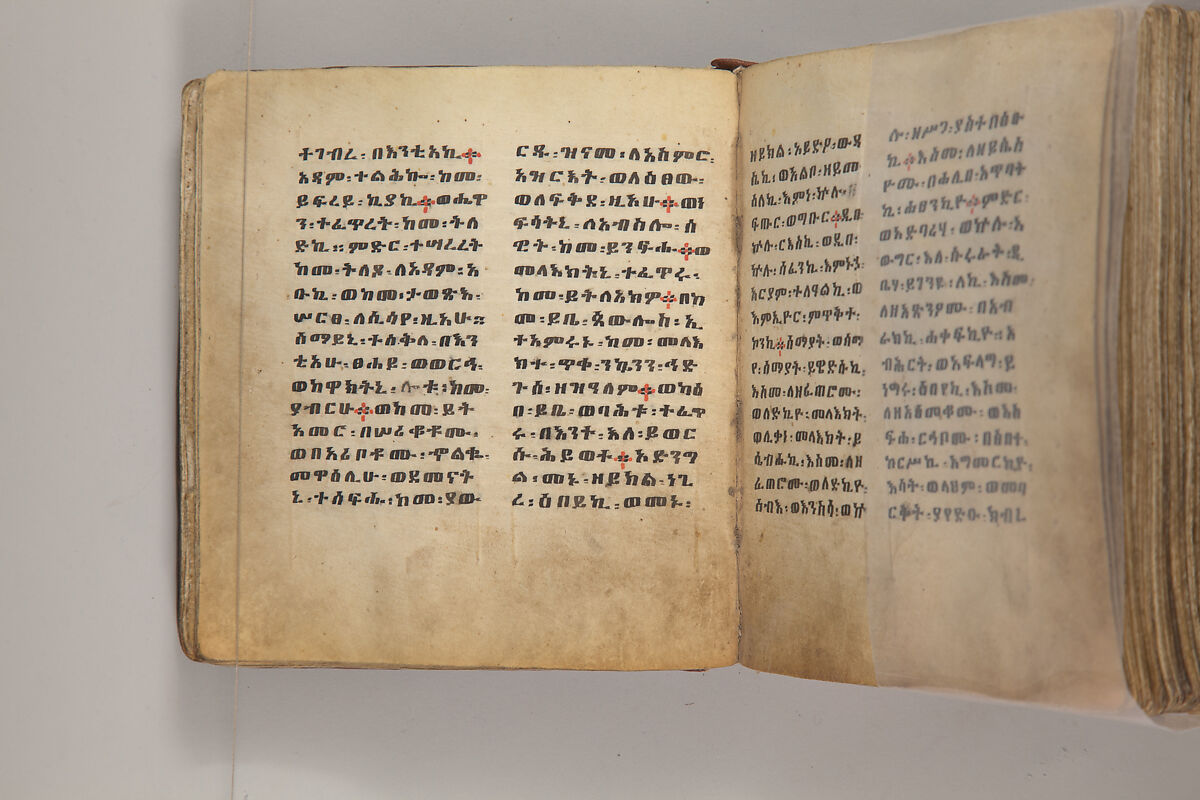 ተገብረ፡በእንቲአኪ፨
አዳም፡ተልሕኰ፡ከመ፡
ይፍረይ፡ኪያኪ፨ወሔዋ
ን፡ተፈጥረት፡ከመ፡ትለ
ድኪ።ምድር፡ተሣረረት
ከመ፡ትለዶ፡ለአዳም፡አ
ቡኪ፡ወከመ፡ታወጽእ፡
ሠርፀ፡ለሲሳየ፡ዚአሁ።
ሰማይኒ፡ተሰቅለ፡በእን
ቲአሁ፡ፀሐይ፡ወወርኅ፡
ወከዋክብትኒ፡ከመ፡
ያብርሁ፨ወከመ፡ይት
አመር፡በሠሪቆቶሙ፡
ወበአሪቦቶሙ፡ኍልቈ፡
መዋዕሊሁ፡ወደመናት
ኒ፡ተሰፍሑ፡ከመ፡ያው
ርዱ፡ዝናመ፡ለአስምር፡
አዝርእት፡ወለዕፀው፡
ወለፍቅደ፡ዚአሁ፨ወነ
ፍሳትኒ፡ለአብስሎ፡ሰ
ዊት፡ከመ፡ይንፍሑ፨ወ
መላእክትኒ፡ተፈጥሩ፡
ከመ፡ይትለአክዎ፨በከ
መ፡ይቤ፡ጳውሎስ፡ኢ
ተአምሩኑ፡ከመ፡መላእ
ክተ፡ጥቀ፡ንኴንን፡ኅድ
ጉሰ፡ዘዝዓለም፨ወካዕ
በ፡ይቤ፡ወባሕቱ፡ተፈጥ
ሩ፡በእንተ፡እለ፡ይወር
ሱ፡ሕይወተ፨አድንግ
ል፡መኑ፡ዘይክል፡ነጊ
ረ፡ዕበይኪ፡ወመኑ፡
ዘይክል፡አይድዖ፡ውዳ
ሴኪ፡ወእልቦ፡ዘይመ
ዕለኪ፡እምነ፡ኵሉ፡
ፍጡር፡ወግቡር፨ዲበ፡
ኵሉ፡ርእስኪ፡ወዲበ፡
ኵሉ፡ሰፈንኪ፡እምኑኃ፡
አርያም፡ተለዓልኪ፡ወ
እምኢዮር፡ምጥቅተ፡
ኮንኪ፨ሰማያት፡ወሰማ
የ፡ሰማያት፡ይዌድሱኪ፡
እስመ፡ለዘፈጠሮሙ፡
ወለድኪዮ፡መላእክት፡
ወሊቃነ፡መላእክት፡ይ
ሴብሑኪ፡እስመ፡ለዘ
ፈጠሮሙ፡ወለድኪዮ፡
ሰብእ፡ወእንስሳ፡ወኵ
ሉ፡ዘሥጋ፡ያስተበፅዑ
ኪ፨እስመ፡ለዘይሴሲ
ዮሙ፡በሐሊበ፡አጥባት
ኪ፡ሐፀንኪዮ፨ምድር፡
ወአድባሪሃ፡ወኵሉ፡አ
ውግር፡እለ፡ስሩራት፡ዲ
ቤሃ፡ይገንዩ፡ለኪ፡እስመ፡
ለዘአጽንዖሙ፡በአብ
ራክኪ፡ሐቀፍኪዮ፡አ
ብሕርት፡ወአፍላግ፡ይ
ነግሩ፡ዕበየኪ፡እስመ፡
ለዘአፅመቆሙ፡ወአስ
ፍሐ፡ርኅቦሙ፡በዕበተ፡
ከርሥኪ፡አግመርኪዮ፡
እሳት፡ወላህም፡ወመባ
ርቅት፡ያየድዑ፡ክብረ